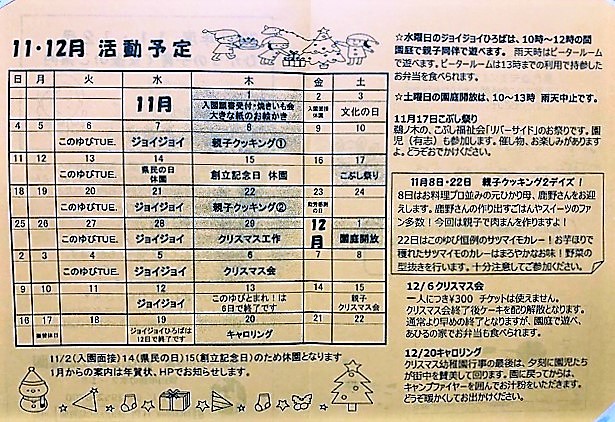 11・12月 活動予定
日 月 火 水 木 金 土
11月
1
入園願書受付・焼きいも会
大きな紙のお絵かき
2
入園面接
休園
3
文化の日
4 5 6 7 8 9 10
このゆびTUE. ジョイジョイ 親子クッキング①
11 12 13 14 15 16 17
このゆびTUE. 県民の日
休園
創立記念日 休園 こぶし祭り
18 19 20 21 22 23 24
このゆびTUE. ジョイジョイ 親子クッキング② 勤労感謝
の日
25 26 27 28 29 12月 1
このゆびTUE. ジョイジョイ クリスマス工作 園庭開放
2 3 4 5 6 7 8
このゆびTUE. ジョイジョイ クリスマス会
9 10 11 12 13 14 15
ジョイジョイ このゆびとまれ!は
6日で終了です
親子
クリスマス会
16 17 18 19 20 21 22
振替休日 ジョイジョイひろばは
12日で終了です
キャロリング
11/2(入園面接)14(県民の日)15(創立記念日)のため休園となります
1月からの案内は年賀状、HPでお知らせします。
☆水曜日のジョイジョイひろばは、10時~12時の間
園庭で親子同伴で遊べます。 雨天時はピータールーム
で遊べます。ピータールームは13時までの利用で持参した
お弁当を食べられます。
☆土曜日の園庭開放は、10~13時 雨天中止です。
11月17日こぶし祭り
鵜ノ木の、こぶし福祉会「リバーサイド」のお祭りです。園
児(有志)も参加します。催し物、お楽しみがあります
よ。どうぞおでかけください。
11月8日・22日 親子クッキング2デイズ!
8日はお料理プロ並みの元ひかり母、鹿野さんをお迎
えします。鹿野さんの作り出すごはんやスイーツのファ
ン多数!今回は親子で肉まんを作りますよ!
22日はこのゆび恒例のサツマイモカレー!お芋ほりで
穫れたサツマイモのカレーはまろやかなお味!野菜の
型抜きを行います。十分注意してご参加ください。
12/6クリスマス会
一人につき¥300 チケットは使えません。
クリスマス会終了後ケーキを配り解散となります。
通常より早めの終了となりますが、園庭で遊べ、
あひるの家でお弁当も食べられます。
12/20キャロリング
クリスマス幼稚園行事の最後は、夕刻に園児たち
が街中を賛美して回ります。園に戻ってからは、
キャンプファイヤーを囲んでお汁粉をいただきます。
どうぞ暖かくしてお出かけください。